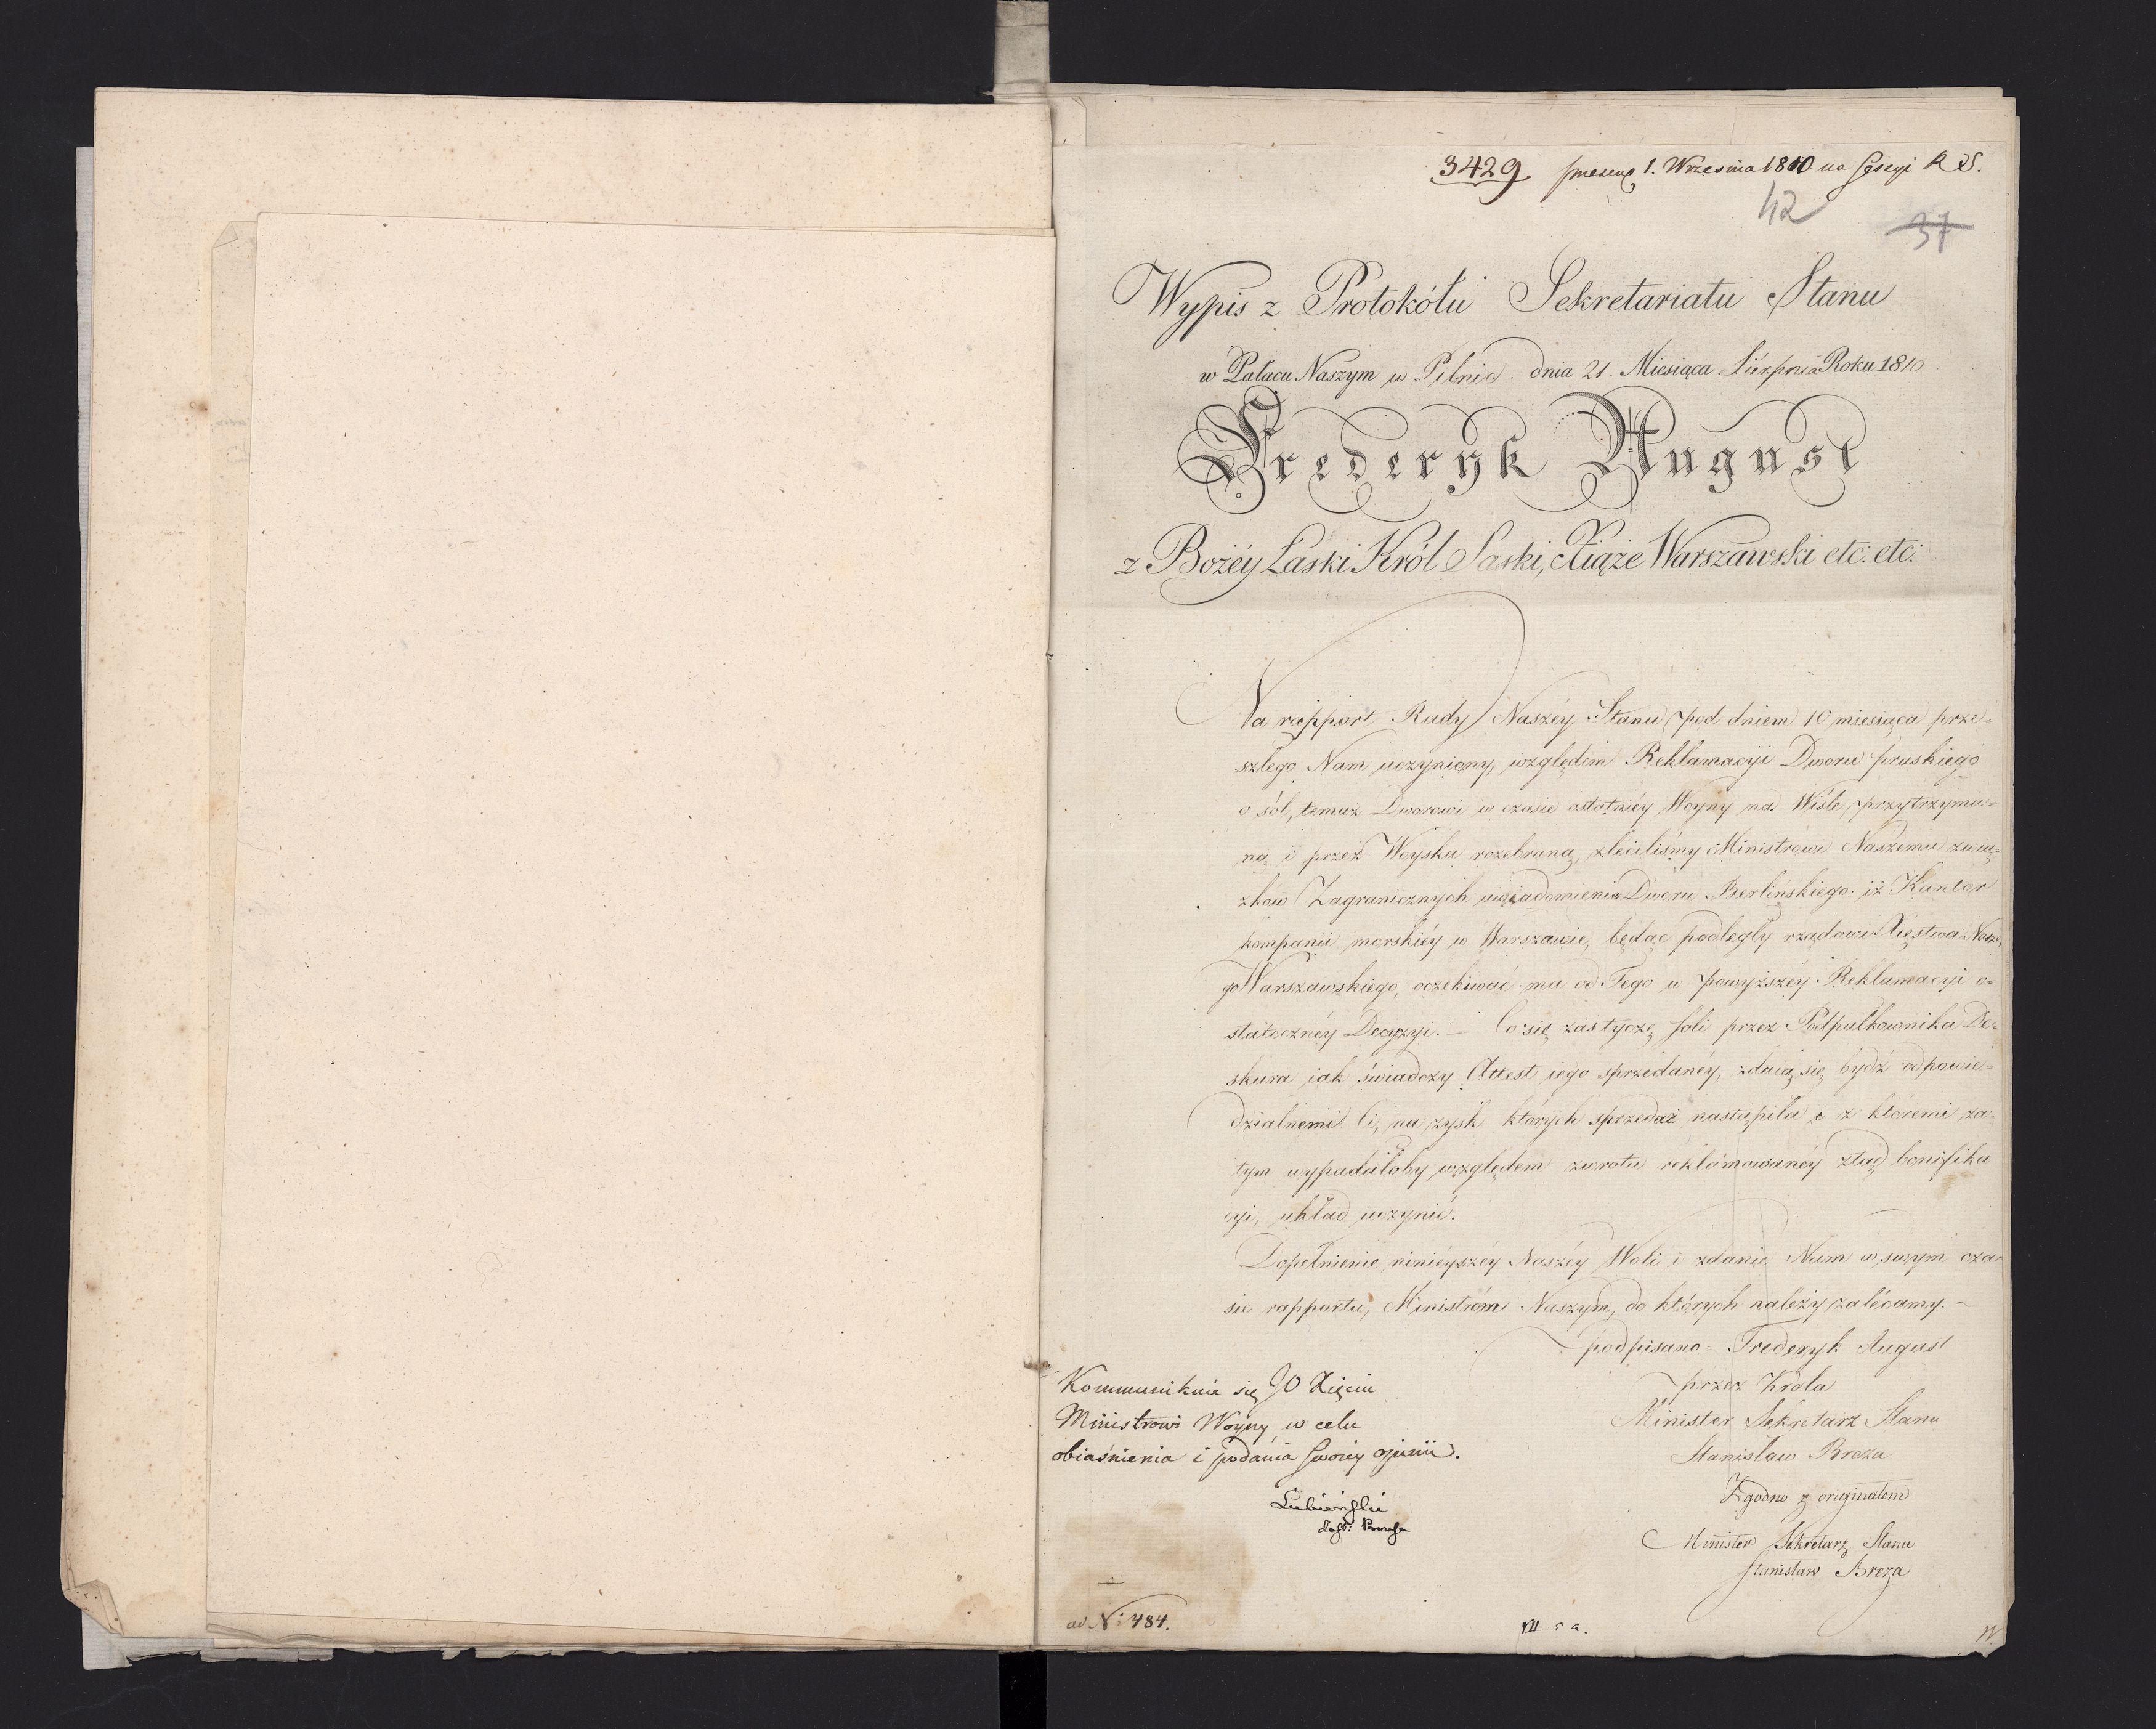 3429 praesent 1. Września 1810 na Sessyi R S.
42
37
Wypis z Protokółu Sekretariatu Stanu
w Pałacu Naszym w Pilnic. dnia 21. Miesiąca Sierpnia Roku 1810
Frederyk August
z Bożéy Łaski Król Saski, Xiąże Warszawski etc: etc:
Na rapport Rady Naszéy Stanu pod dniem 10 miesiąca prze-
szłego Nam uczyniony, względem Reklamacyi Dworu pruskiego
o sól, temuż Dworowi w czasie ostatniéy Woyny na Wiśle przytrzyma-
ną i przez Woyska rozebraną, zleciliśmy Ministrowi Naszemu zwią-
zków Zagranicznych uwiadomienie Dworu Berlińskiego: iż Kantor
kompanii morskiéy w Warszawie, będąc podległy rządowi Xięstwa Nasze-
go Warszawskiego, oczekiwać ma od Tego w powyższéy Reklamacyi o-
statecznéy Decyzyi. – Co się zaś tycze soli przez Podpułkownika De-
skura jak świadczy Attest jego sprzedanéy, zdaią się bydź odpowie-
dzialnemi Ci, na zysk których sprzedaż nastąpiła i z któremi za-
tym wypadałoby względem zwrotu reklamowanéy ztąd bonifika
cyi, układ uczynić.
Dopełnienie ninieyszéy Naszéy Woli i zdanie Nam w swym cza-
sie rapportu, Ministróm Naszym, do których należy zalécamy. –
podpisano = Frederyk August
przez Króla
Minister Sekretarz Stanu
Stanisław Breza
Zgodno z oryginałem
Minister Sekretarz Stanu
Stanisław Breza
Kommunikuie się JO Xięciu
Ministrowi Woyny w celu
obiaśnienia i podania swoiey opinii.
Lubieński
Zast: Prezesa
ad N: 484.